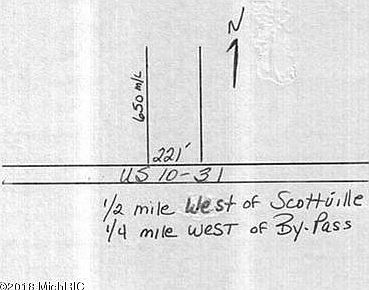 N
650 m/L
221'
US 10-31
1/2 mile West of Scottville
1/4 mile WEST of By-Pass
©2018 MichRIC